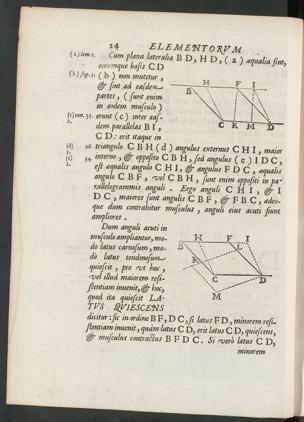 24 ELEMENTORVM
(a) sem. 5. Cum plana lateralia BD, HD, (a) æqualia sint,
eorumque basis CD
(b) sup. 2. (b) non mutetur,
& sint ad easdem
partes, (sunt enim
in eodem musculo)
(c) em. 35. erunt (c) inter eas-
1. dem parallelas BI,
CD: erit itaque in
(d) 16. triangulo CBH (d) angulus externus CHI, maior
1. interno, & opposito CBH, sed angulus (e) IDC,
(e) 34. est æqualis angulo CHI, & angulus FDC, æqualis
1. angulo CBF, vel CBH, sunt enim oppositi in pa-
rallelogrammis anguli. Ergo anguli CHI, & I
DC, maiores sunt angulis CBF, & FBC, adeo-
que dum contrahitur musculus, anguli eius acuti fiunt
ampliores.
B H F I
C K M D
Dum anguli acuti in
musculo ampliantur, mo-
dò latus carnosum, mo-
dò latus tendinosum
quiescit, pro vt hoc,
vel illud maiorem resi-
stentiam inuenit, & hoc,
quod ita quiescit LA-
TVS QVIESCENS
B H F I
L
K
C D
M
dicitur: sic in ordine BF, DC, si latus FD, minorem resi-
stentiam inuenit, quàm latus CD, erit latus CD, quiescens,
& musculus contractus BFDC. Si verò latus CD,
minorem